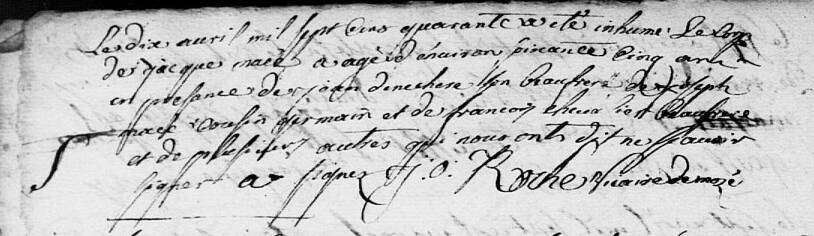 Le dix avril mil sept cens quarante a eté inhumé le corp
de jacque macé agé d'environ sincante cinq ans
en presance de jean denechere son beaufrere de joseph
macé cousin germain et de francois beaufrere
et de plusieurs autres qui nous ont dit ne scavoir
signer a signer J. O. Roche vicaire de mozé